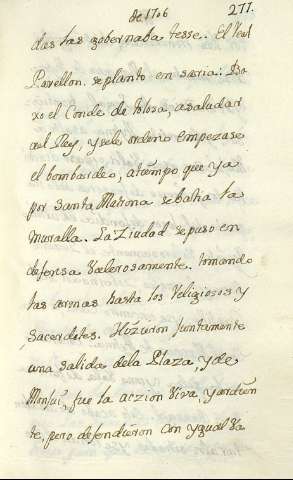 de 1706
277.
das las gobernaba tesse. El Real
Pavellon. se plantò en saria: Ba-
xò el Conde de tolosa, a saludar
al Rey, y sele ordeno empezase
el bombardeo, atiempo que ya
por Santa Matrona se batia la
muralla. La Ziudad se puso en
defensa Valerosamente. tomando
las armas hasta los Religiosos y
Sacerdotes. Hizieron Juntamente
una salida dela Plaza, y de
Monjui, fue la aczion Viva, y ardien
te, pero defendieron con ygual Va